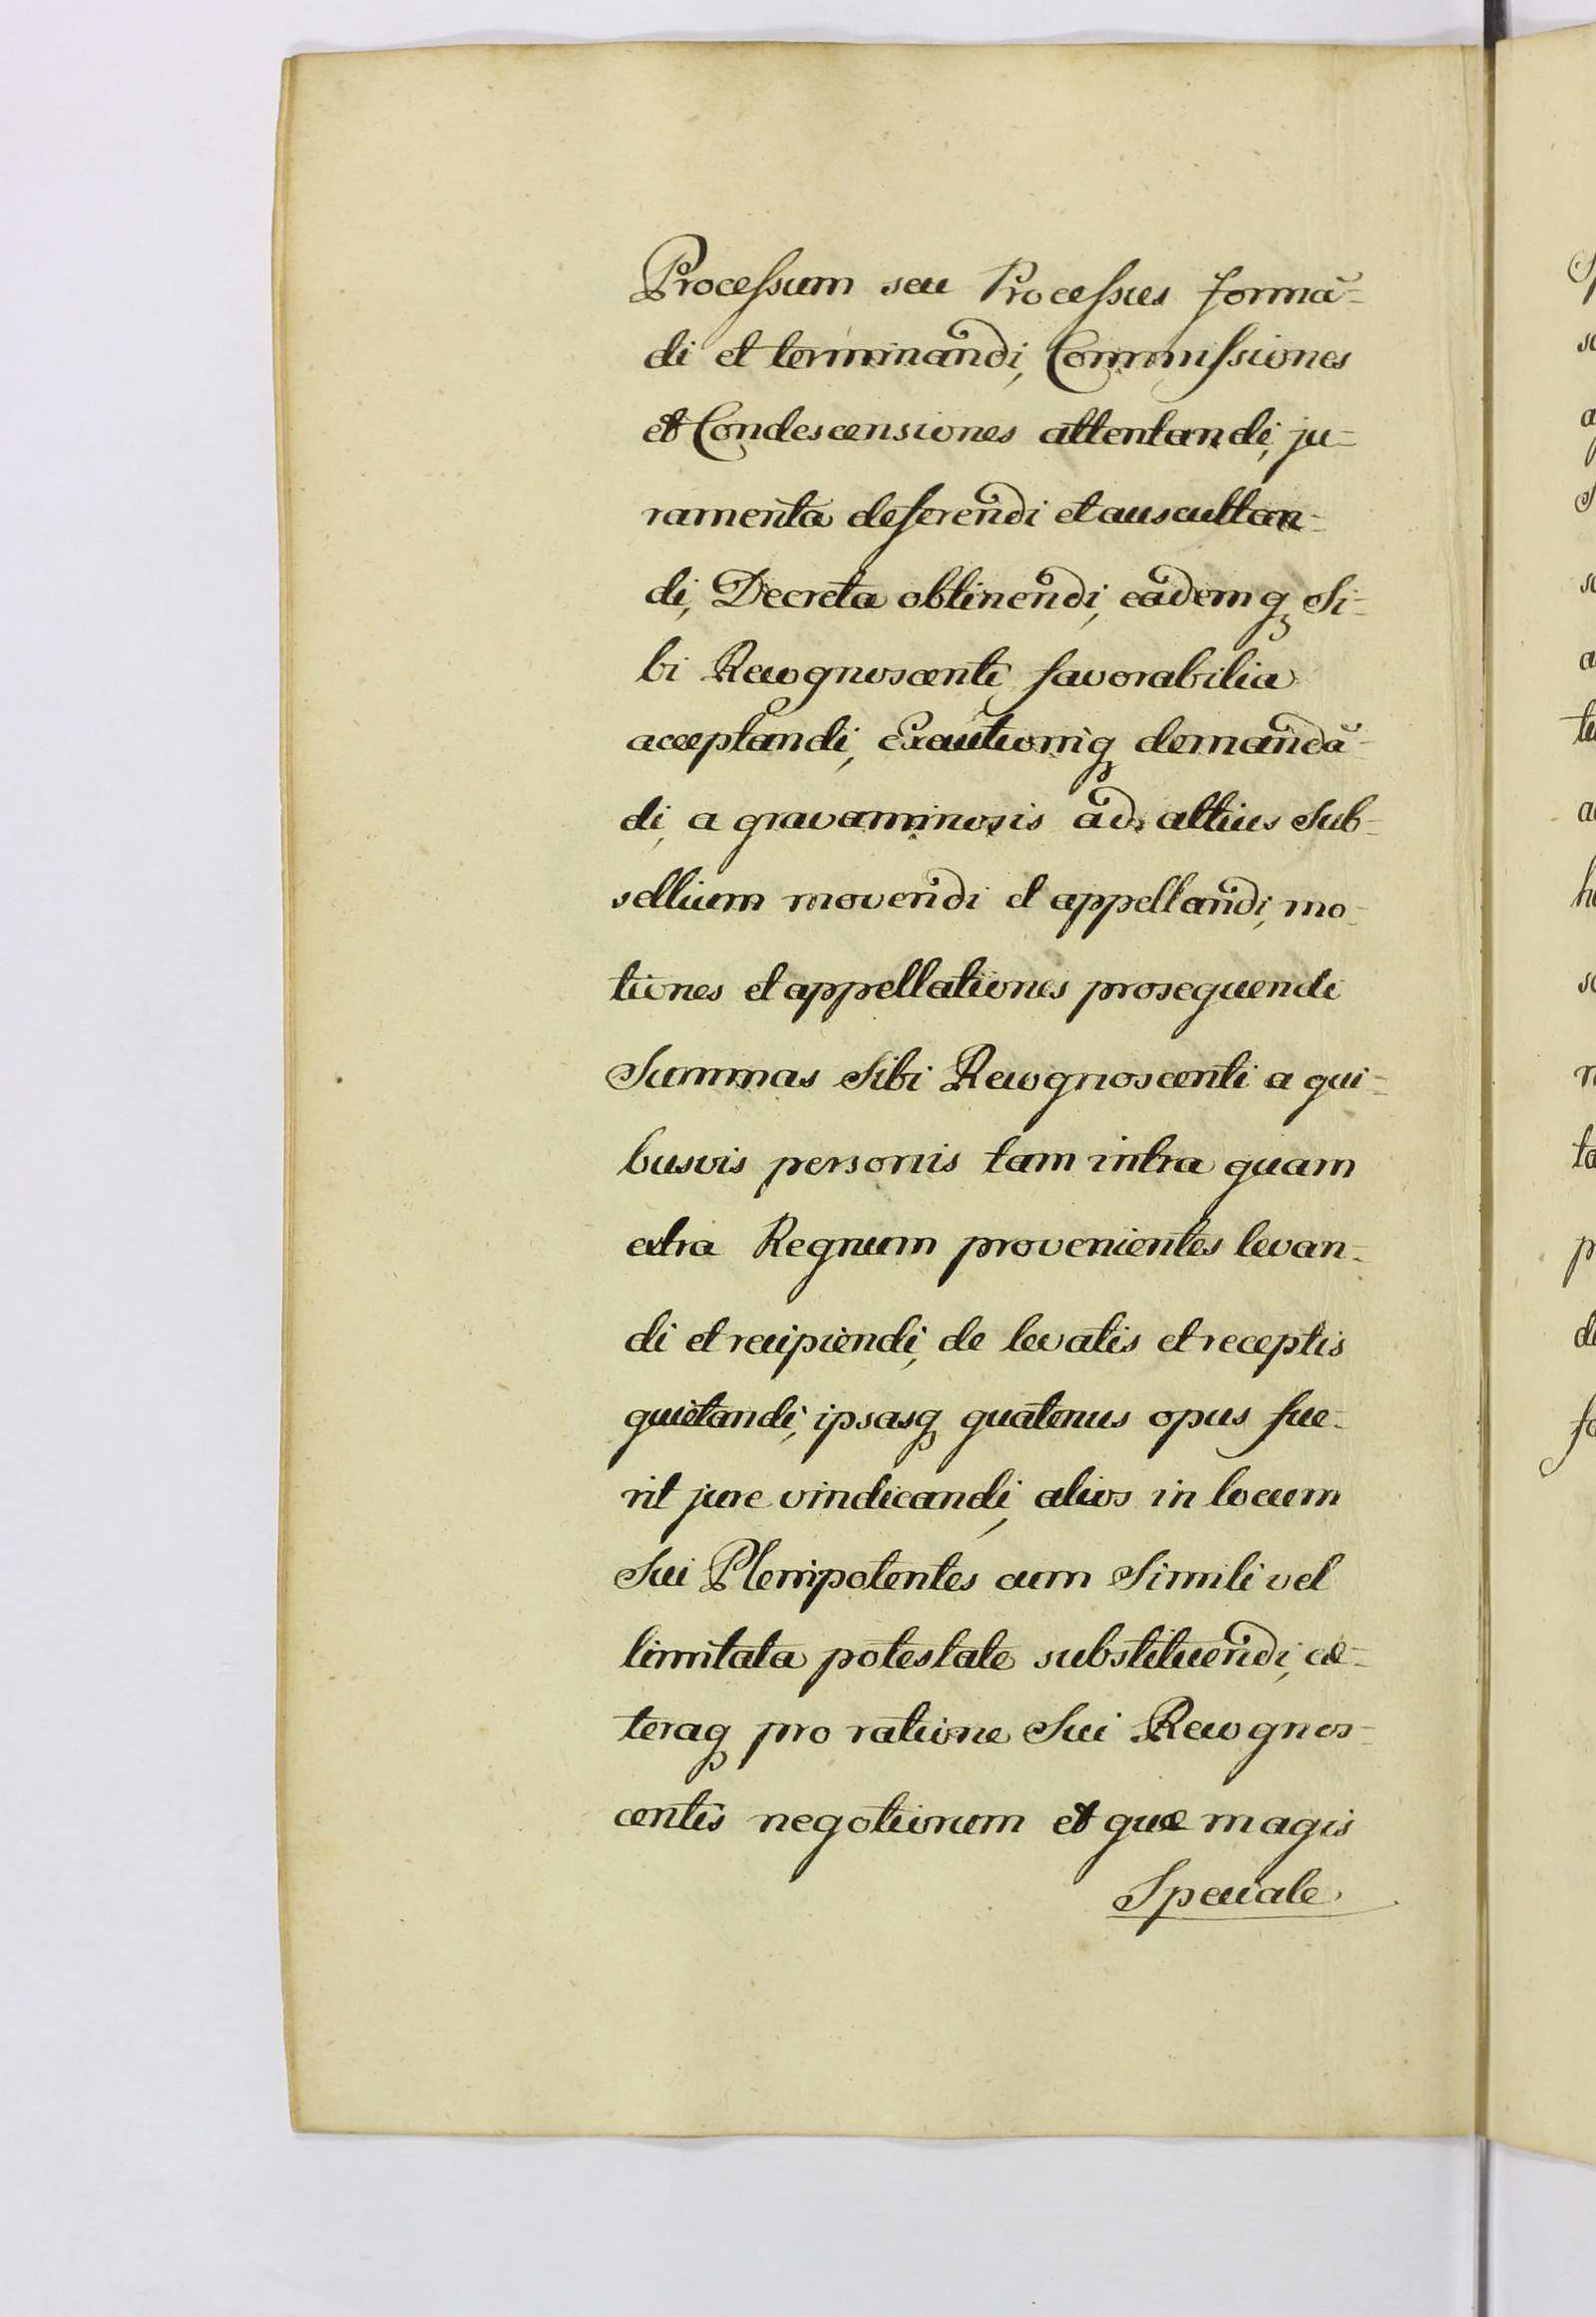 Processum seu Processus formā=
di et terminandi, Commissiones
et Condescensiones attentandi, ju=
ramenta deferendi et auscultan=
di, Decreta obtinendi, eademq Si=
bi Recognoscenti favorabilia
acceptandi, Executioniq demandā=
di, a gravaminosis ad altius Sub=
sellium movendi et appellandi, mo=
tiones et appellationes prosequendi
Summas Sibi Recognoscenti a qui=
busvis personis tam intra quam
extra Regnum provenientes levan=
di et recipiendi, de levatis et receptis
quietandi, ipsasq quatenus opus fue=
rit jure vindicandi, alios in locum
Sui Plenipotentes cum Simili vel
limitata potestate substituendi, cæ=
teraq pro ratione Sui Recognos=
centis negotiorum et quæ magis
Speciale